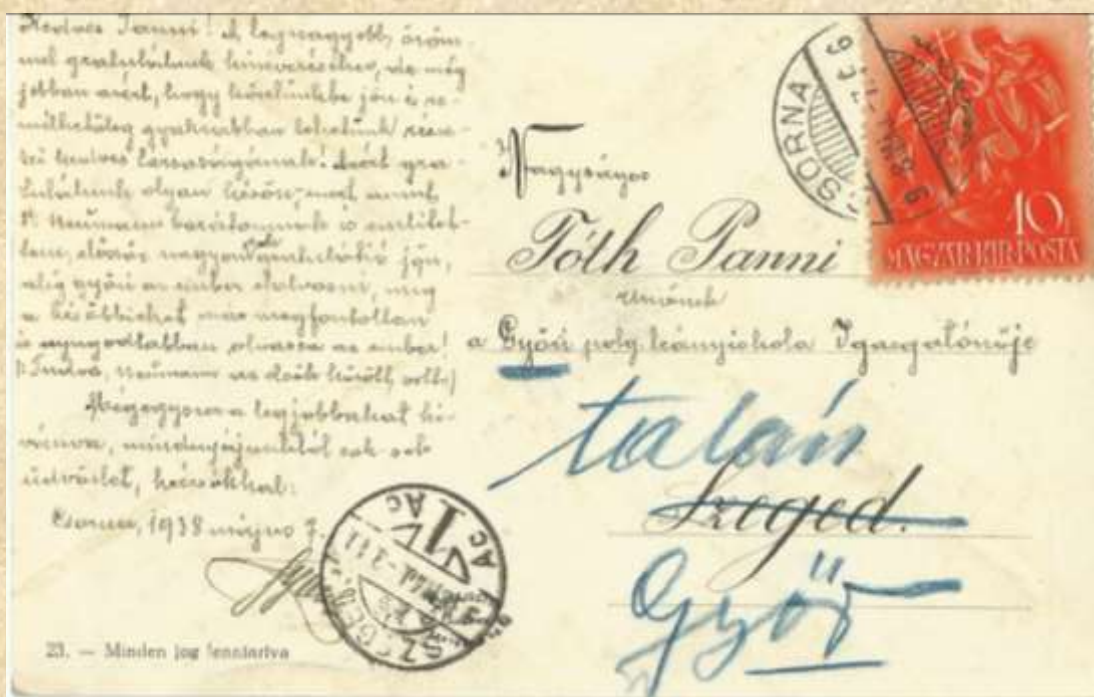 Kedves Panni! A legnagyobb öröm-
mel gratulálunk kinevezéséhez, de még
jobban azért, hogy közelünkbe jön s re-
mélhetőleg gyakrabban lehetünk része-
sei kedves társaságának! Azért gra-
tulálunk olyan későn, mert amint
Neumann barátomnak is említet-
tem, először nagyon sok gratuláció jön,
alig győzi az ember elolvasni, míg
a későbbieket már megfontoltan
is nyugodtabban olvassa az ember!
Neumann az elsők között volt.)
Mégegyszer a legjobbakat kí-
vánva, mindnyájunktól sok sok
üdvözlet, kézcsókkal:
Csorna, 1938 május 7.
23. — Minden jog fenntartva
CSORNA
10
MAGYAR·KIR·POSTA
Nagyságos
Tóth Panni
úrnőnek
a Győri polg. leányiskola Igazgatónője
talán
Szeged.
Győr
SZEGED
1